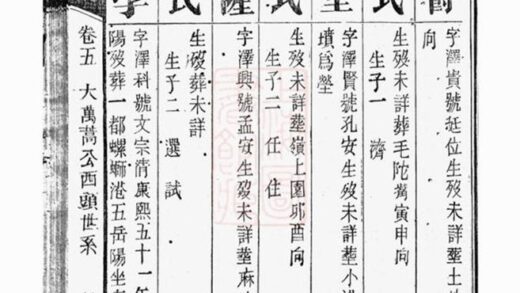 字澤貴號廷位生歿未詳塟土
向
氏
生歿未詳葬毛陀嘴寅申向
生子一 濟
字澤賢號孔安生歿未詳塟小
墳爲塋
氏
生歿未詳塟嶺上園卯酉向
生子二 任 住
字澤興號孟安生歿未詳塟麻
氏
生歿葬未詳
生子二 選 試
字澤科號文宗清康熙五十一年
陽歿葬一都螺螄港五岳陽坐
卷五 大萬蒿公西頭世系